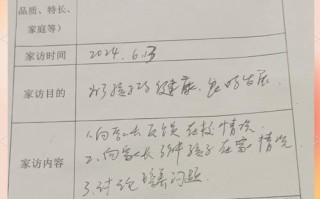 品质、特长、
家庭等）
家访时间 2024. 6.13
家访目的 为了孩子的健康、良好发展
家访内容
1.向家长反馈在校情况
2.向家长了解孩子在家情况
3.讨论 问题